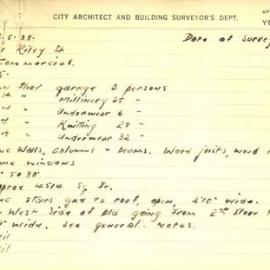 CITY ARCHITECT AND BUILDING SURVEYOR'S DEPT.
YE
5.28. Date of Survey
Riley St
Commercial.
5.
Floor garage 3 persons
" Millinery 25 "
" Underwear 6 "
" Knitting 28 "
" Underwear 32 "
Walls, Columns & Beams. Wood joists, wood
windows
50 85
approx 4514 Sq Ft.
stairs gnd to roof, open, wide.
West side of Bld going from 2nd floor
wide. See general notes.